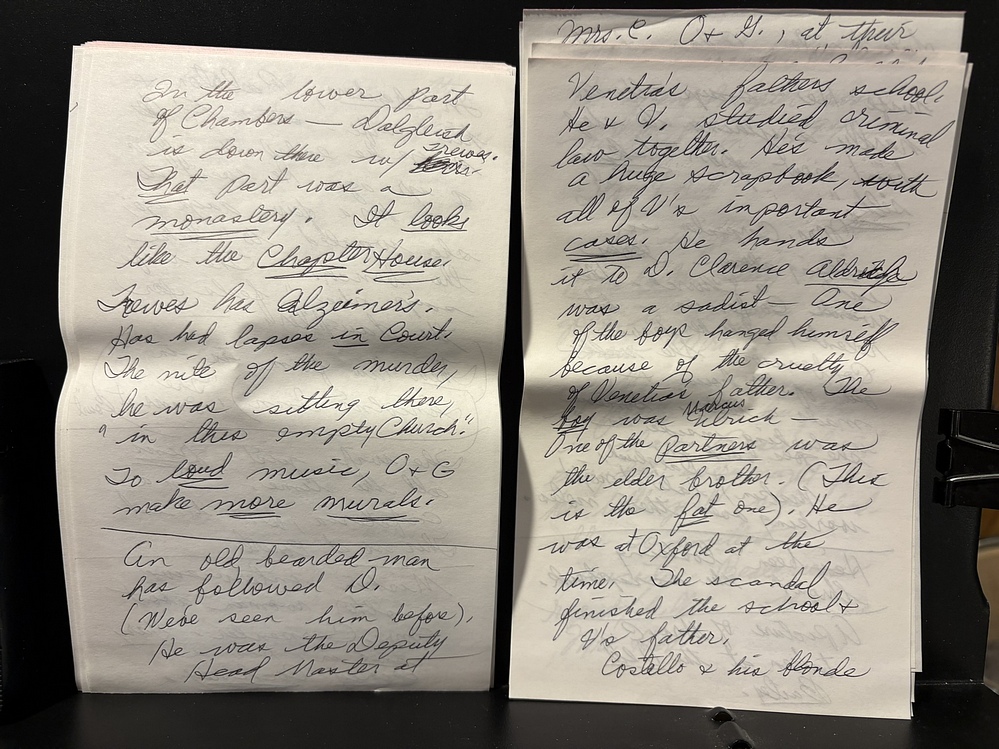 In the lower part
of Chambers — Dalgleish
is down there w/ Trewes.
That part was a
monastery. It looks
like the Chapter House.
Trewes has Alzeimer's.
Has had lapses in Court.
The nite of the murder,
he was sitting there,
"in this empty Church."
To loud music, O & G
make more murals.
An old, bearded man
has followed D.
(We've seen him before).
He was the Deputy
Head Master at
Mrs. C. O & G., at their
Venetia's fathers school.
He & V. studied criminal
law together. He's made
a huge scrapbook, with
all of V's important
cases. He hands
it to D. Clarence Aldridge
was a sadist — One
of the boys hanged himself
because of the cruelty
of Venetia's father. The
boy was Marcus Ulrich —
One of the partners was
the elder brother. (This
is the fat one). He
was at Oxford at the
time. The scandal
finished the school &
V's father.
Costello & his blonde